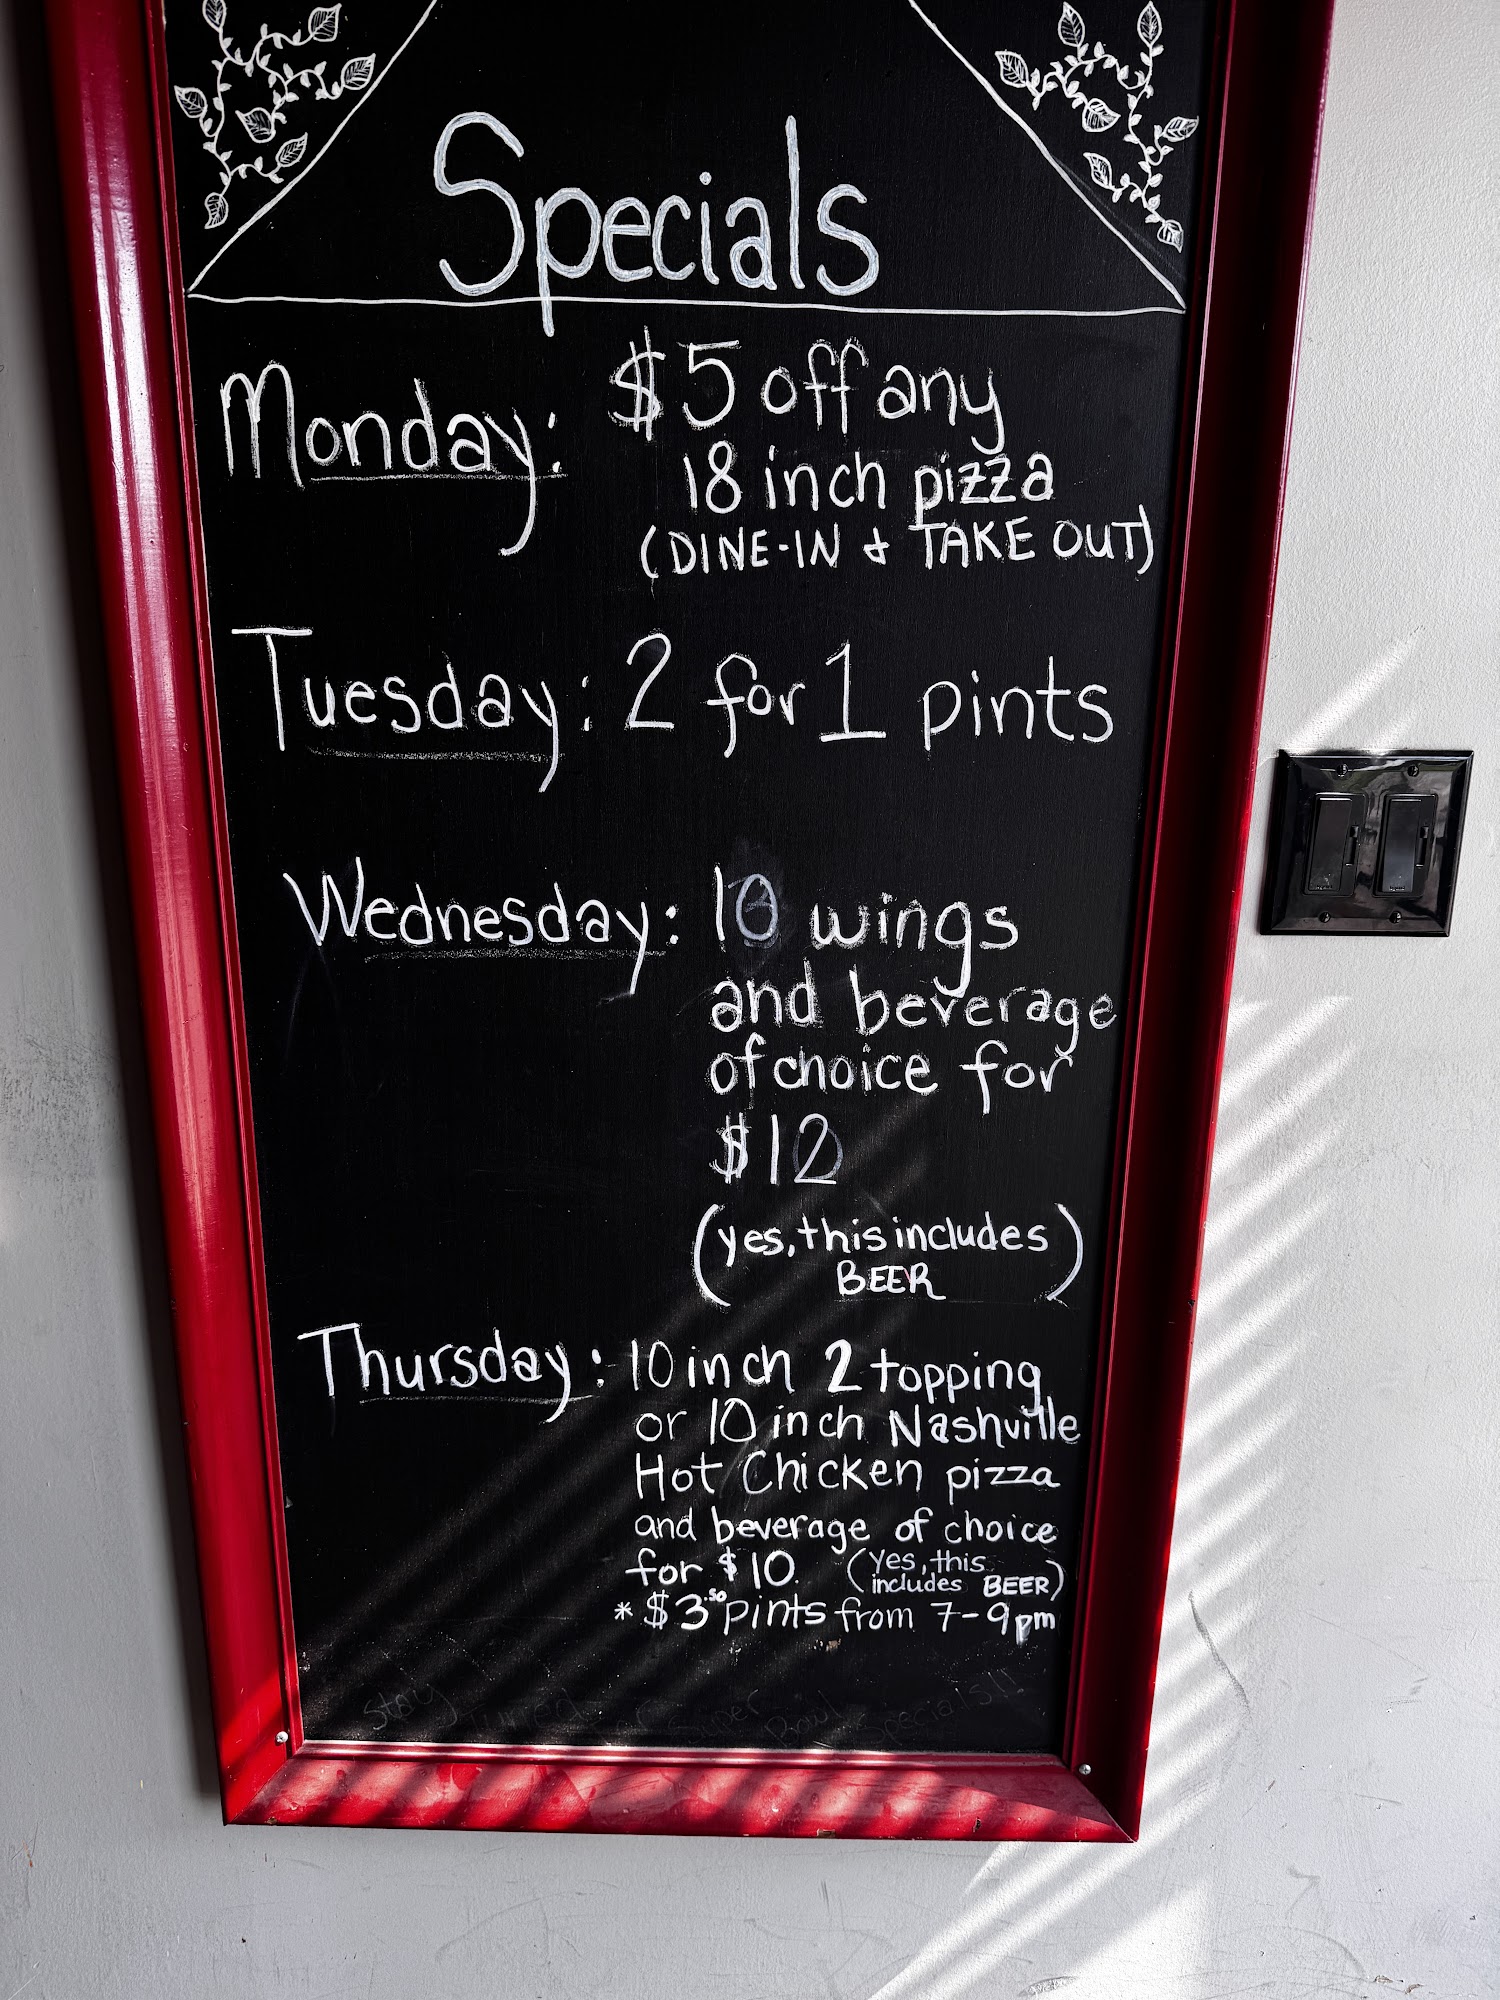 Specials
Monday: $5 off any
18 inch pizza
(DINE-IN & TAKE OUT)
Tuesday: 2 for 1 pints
Wednesday: 10 wings
and beverage
of choice for
$12
(yes, this includes
BEER)
Thursday: 10 inch 2 topping
or 10 inch Nashville
Hot Chicken pizza
and beverage of choice
for $10 (yes, this
includes BEER)
*$3.50 pints from 7-9pm
Stay Tuned for Super Bowl Specials!!